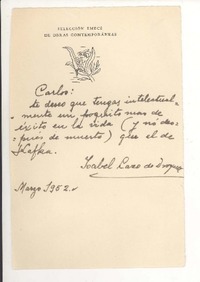 SELECCIÓN EMECÉ
DE OBRAS CONTEMPORÁNEAS
Carlos:
te deseo que tengas intelectual-
mente un poquito mas de
éxito en la vida (y nó des-
pués de muerto) que el de
Kafka.
Isabel Lazo de
Marzo 1952